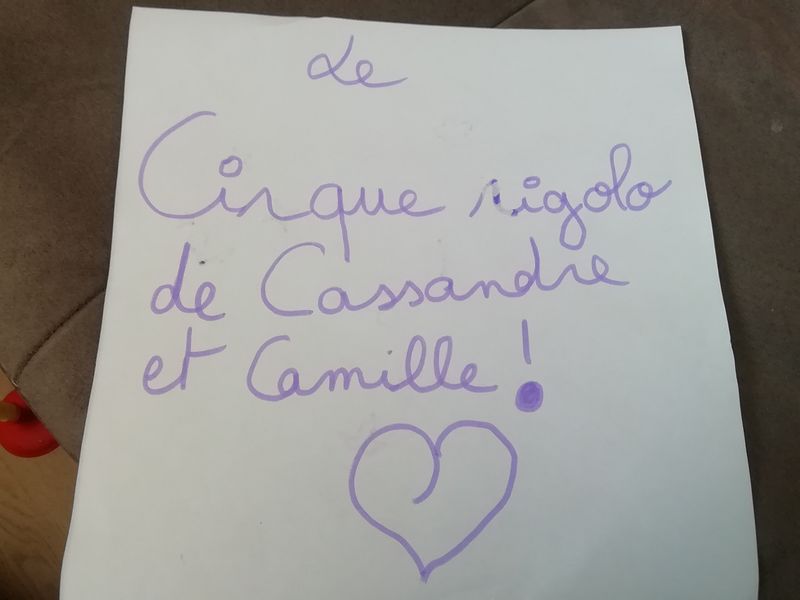 Le
Cirque rigolo
de Cassandre
et Camille !